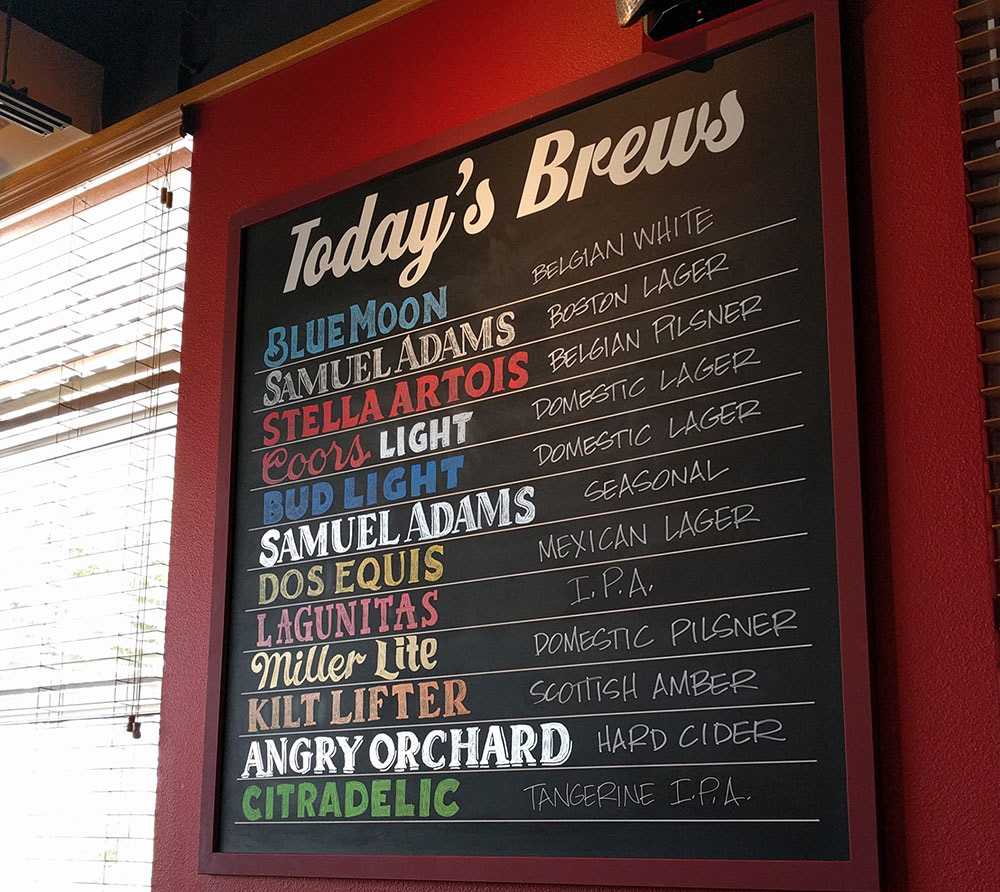 Today's Brews
BLUE MOON BELGIAN WHITE
SAMUEL ADAMS BOSTON LAGER
STELLA ARTOIS BELGIAN PILSNER
Coors LIGHT DOMESTIC LAGER
BUD LIGHT DOMESTIC LAGER
SAMUEL ADAMS SEASONAL
DOS EQUIS MEXICAN LAGER
LAGUNITAS I.P.A.
Miller Lite DOMESTIC PILSNER
KILT LIFTER SCOTTISH AMBER
ANGRY ORCHARD HARD CIDER
CITRADELIC TANGERINE I.P.A.